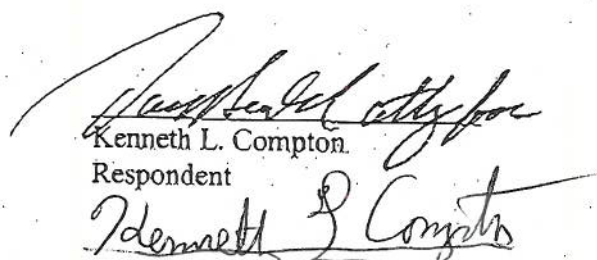 atty for
Kenneth L. Compton
Respondent
Kenneth L Compton